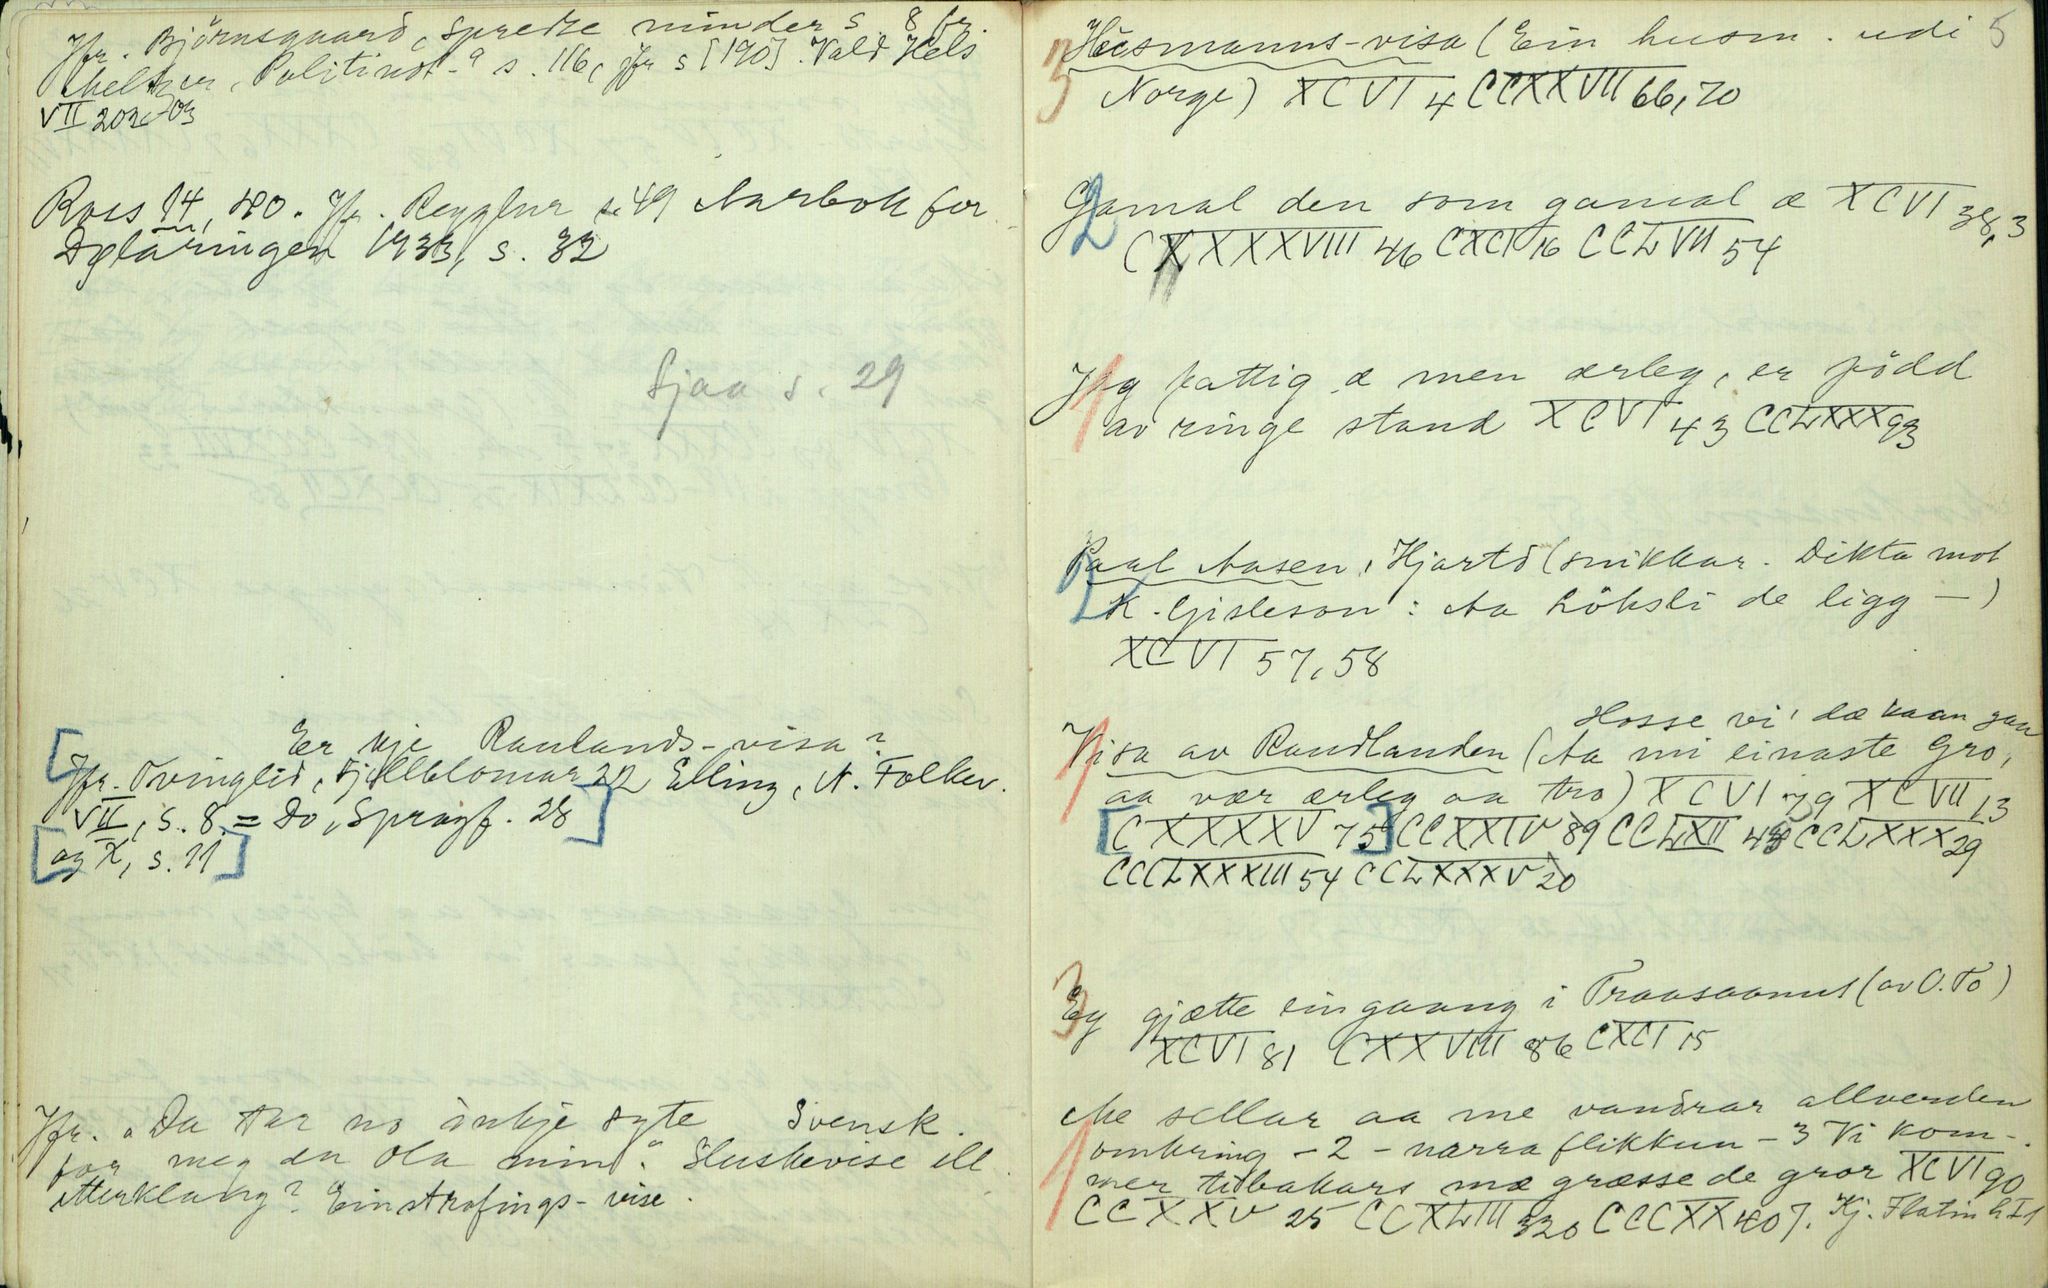 Jfr. Björnsgaard, spredte minder s. 8 fr.
Politinot- s. 116, jfr s [190]. Vald. Hels
VII 202, 203
Ross 14, 40. Jfr. Reyglur s. 49 Aarbok for
Dølaringen 1933, s. 32
Sjaa s. 29
Er kje Raulands-visa?
Jfr. Tvinglid, Fjellblomar 22 Elling, N. Folkev.
VII, s. 8 = Do, Spragf. 28
og X, s. 11
Jfr. "Du tar no inkje syte Svensk.
for meg du Ola min." Huskevise ell.
etterklang? Einstrofings-vise.
5
3 Husmanns-visa (Ein husm. udi
Norge) XCVI 4 CCXXVII 66, 70
2 Gamal den som gamal æ XCVI 38, 3
CXXXXVIII 46 CXCI 16 CCLVII 54
1 Jeg fattig æ men ærleg, er född
av ringe stand XCVI 43 CCLXXX 93
2 Paal Aasen, Hjartd (snikkar. Dikta mot
K. Gisleson: Aa Höksli de ligg —)
XCVI 57, 58
Hosse vi' dæ kaan gaa
1 Visa av Randlanden (Aa mi einaste Gro,
aa vær ærleg aa tro) XCVI 79 XCVII 13
[CXXXXV 75] CCXXIV 89 CCLXII 48 CCLXXX 29
CCCLXXXIII 54 CCLXXXV 20
3 Eg gjætte ein gaang i Traasaamut (av O. To)
XCVI 81 CXXVIII 86 CXCI 15
1 Me sellar aa me vandrar allverden
omkring - 2 - narra flikkun - 3 Vi kom-
mer tilbakars mæ græsse de gror XCVI 90
CCXXV 25 CCXLIII 320 CCCXX 407. Kj. Flatin h I 1